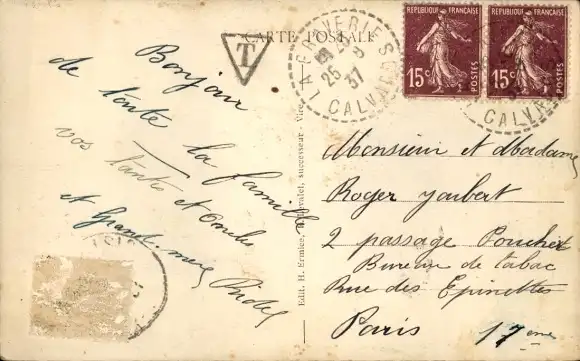 CARTE POSTALE
T
LA GRAVERIE
25 8 37
CALVADOS
REPUBLIQUE FRANÇAISE
15c
POSTES
REPUBLIQUE FRANÇAISE
15c
POSTES
CALVADOS
Bonjour
de toute la famille
vos tante et oncles
et Grand-mère
Edit. H. Ermice, successeur - Vire
Monsieur et Madame
Roger Joubert
2 passage Pouchet
Bureau de tabac
Rue des Epinettes
Paris 17eme